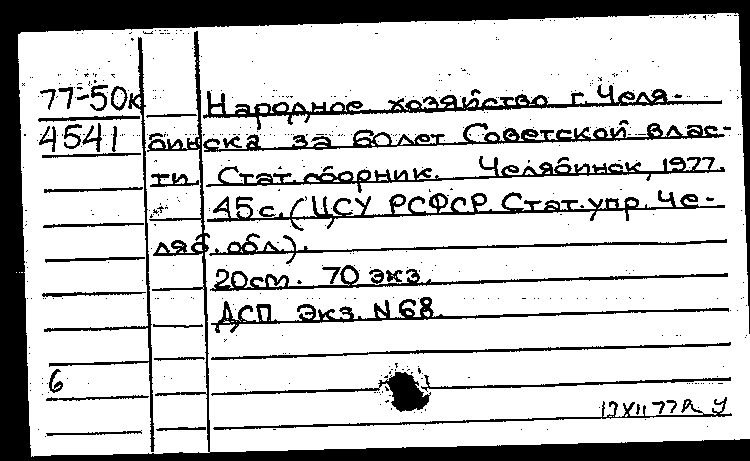 77-50к Народное хозяйство г. Челя-
4541 бинска за 60 лет Советской влас-
ти. Стат. сборник. Челябинск, 1977.
45 с. (ЦСУ РСФСР. Стат. упр. Че-
ляб. обл.).
20 см. 70 экз.
ДСП. Экз. N 68.
6